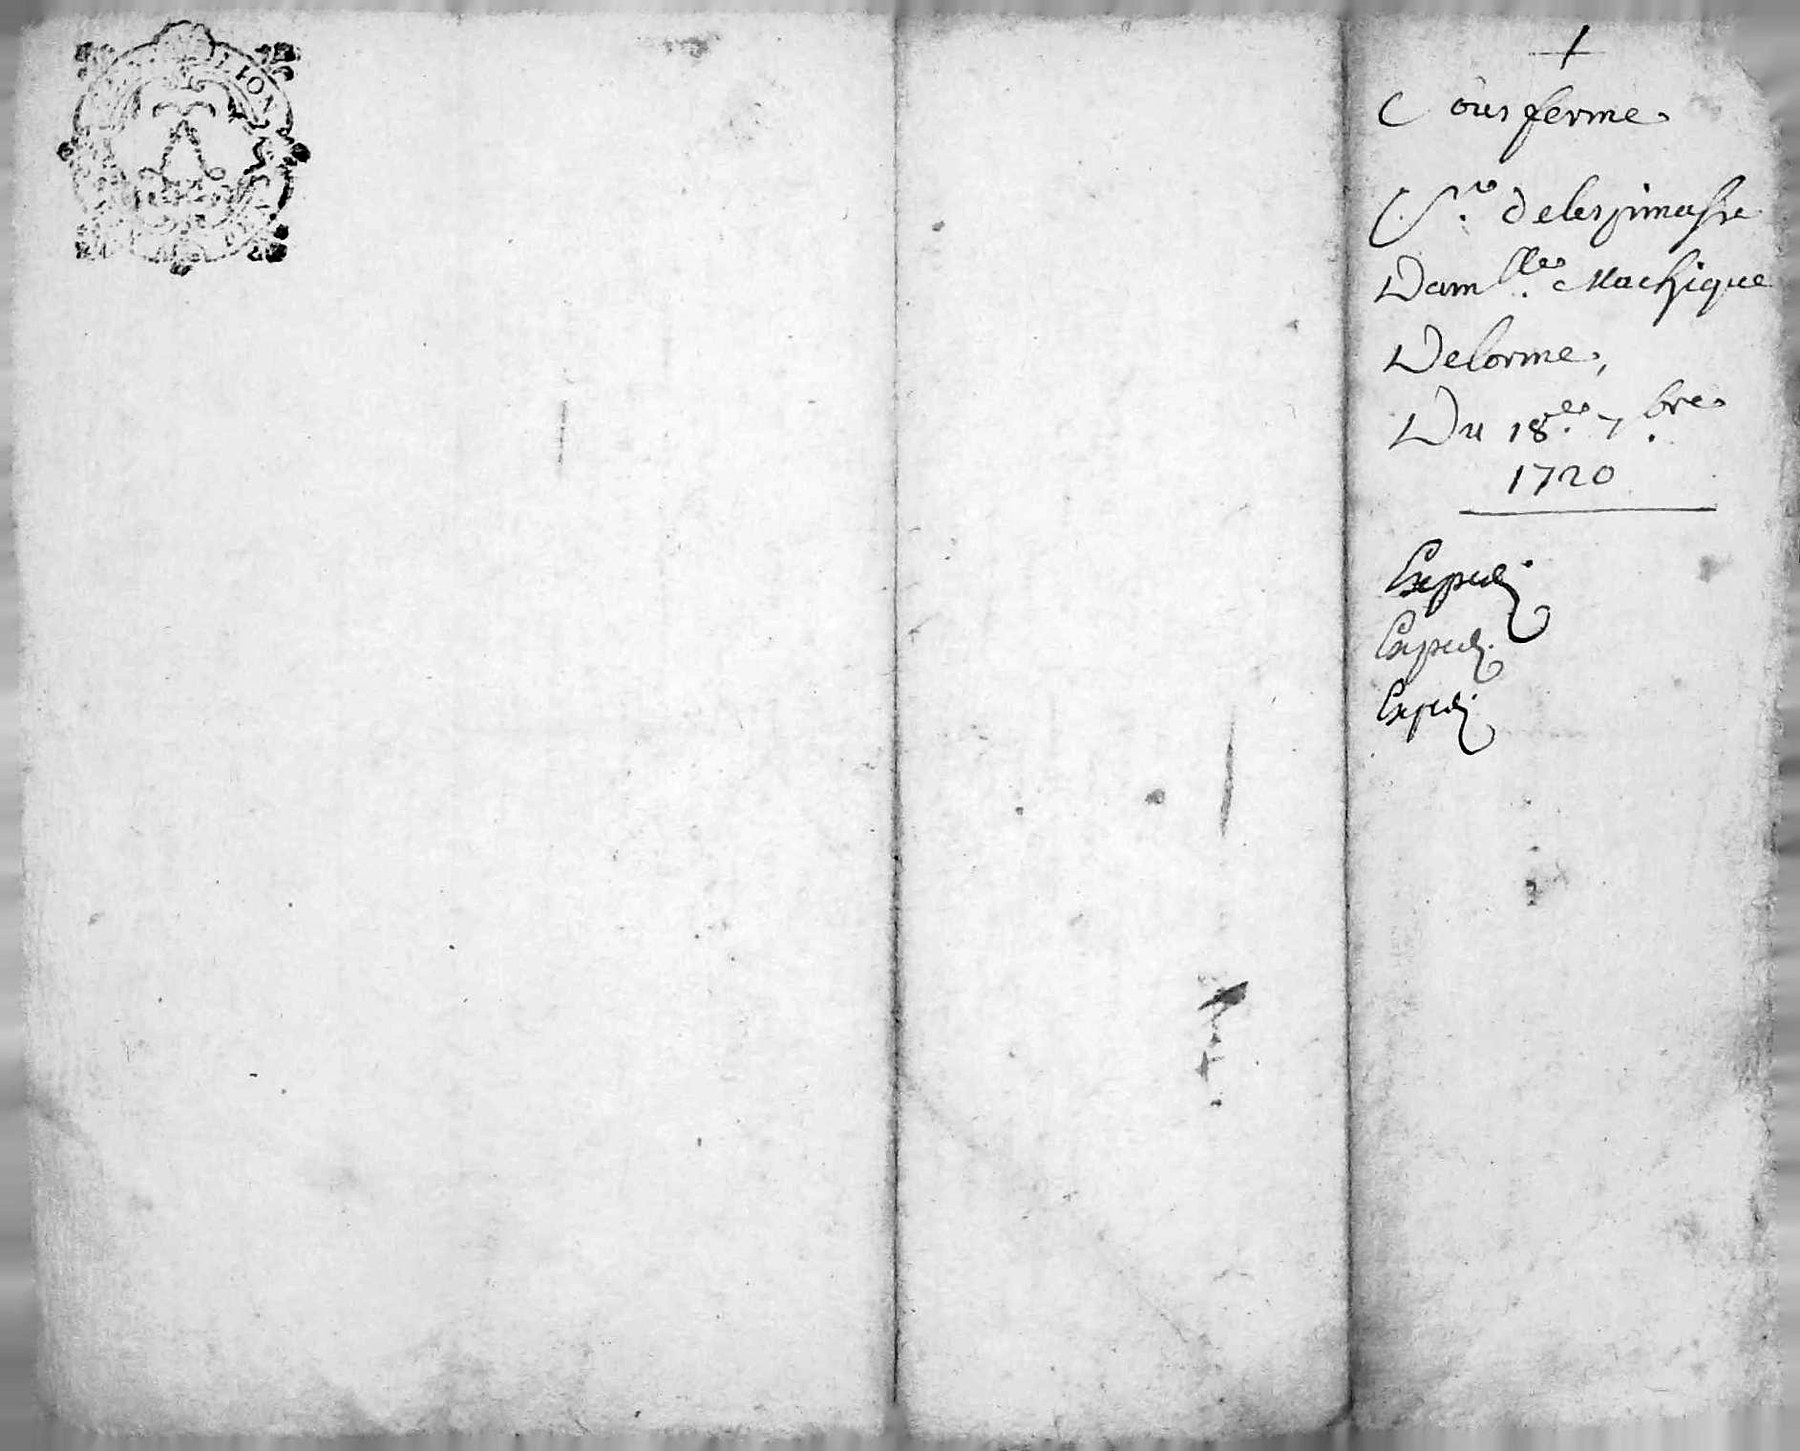 +
Sous ferme
Sr. delespinasse
Damlle. Machique
Delorme,
Du 18e. 7bre.
1720
Expedé
Expedé
Expedé